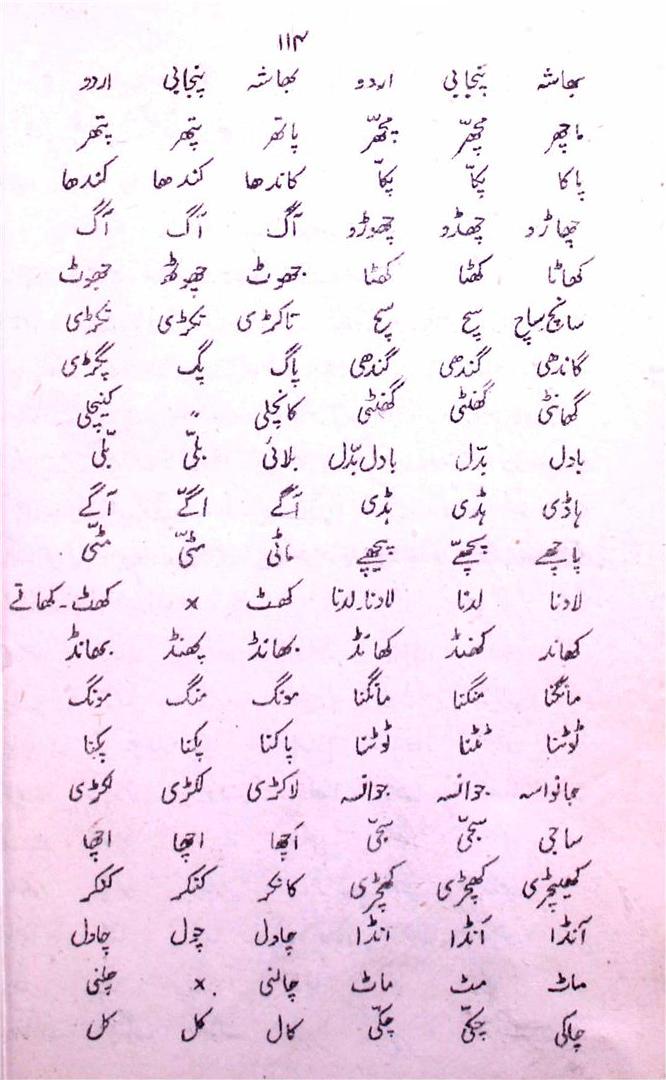 ۱۱۴
بھاشہ پنجابی اردو بھاشہ پنجابی اردو
ماچھر مچھّر مچھّر پاتھر پتھر پتھر
پاکا پکّا پکّا کاندھا کندھا کندھا
چھاڑو چھڈو چھوڑو آگ اگ آگ
کھاٹا کھٹا کھٹا جھوٹ جھوٹھ جھوٹ
سانچ ساچ سچ سچ تاکڑی تکڑی تکڑی
گاندھی گندھی گندھی پاگ پگ پگڑی
گھانٹی گھنٹی گھنٹی کانچلی ״ کینچلی
بادل بدّل بادل بدّل بلائی بلّی بلّی
ہاڈی ہڈی ہڈی آگے اگّے آگے
پاچھے پچھّے پیچھے ماٹی مٹّی مٹّی
لادنا لدنا لادنا۔لدنا کھٹ × کھٹ۔کھاتے
کھاند کھنڈ کھانڈ بھانڈ پھنڈ بھانڈ
مانگنا منگنا مانگنا مونگ منگ مونگ
ٹوٹنا ٹٹنا ٹوٹنا پاکنا پکنا پکنا
جانواسہ جوانسہ جوانسہ لاکڑی لکڑی لکڑی
ساجی سجّی سجّی اچھا اچھا اچھا
کھیچڑی کھچڑی کھچڑی کانکر کنکر کنکر
آنڈا آنڈا انڈا چاول چول چاول
ماٹ مٹ ماٹ چالنی × چلنی
چاکی چکّی چکّی کال کل کل